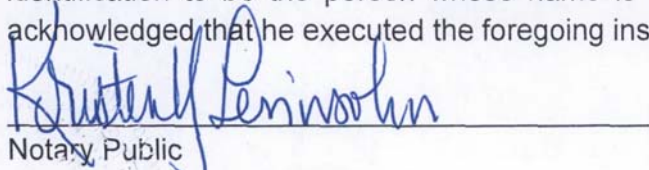 acknowledged that he executed the foregoing ins
Kristen
Notary Public